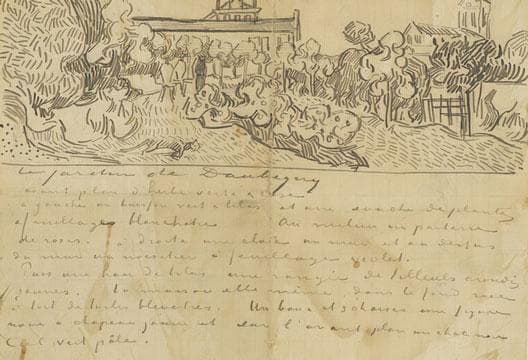 Le jardin de Daubigny
avant plan d'herbe verte & rose
à gauche un buisson vert & lilas et une souche de plantes
à feuillages blanchatres Au milieu un parterre
de roses. à droite une claie un mur et au dessus
du mur un noisetier à feuillage violet.
Puis une haie de lilas une rangée de tilleuls arrondis
jaunes. La maison elle même dans le fond rose
à toit de tuiles bleuatres. Un banc et 3 chaises une figure
noire à chapeau jaune et sur l'avant plan un chat noir
Ciel vert pâle.